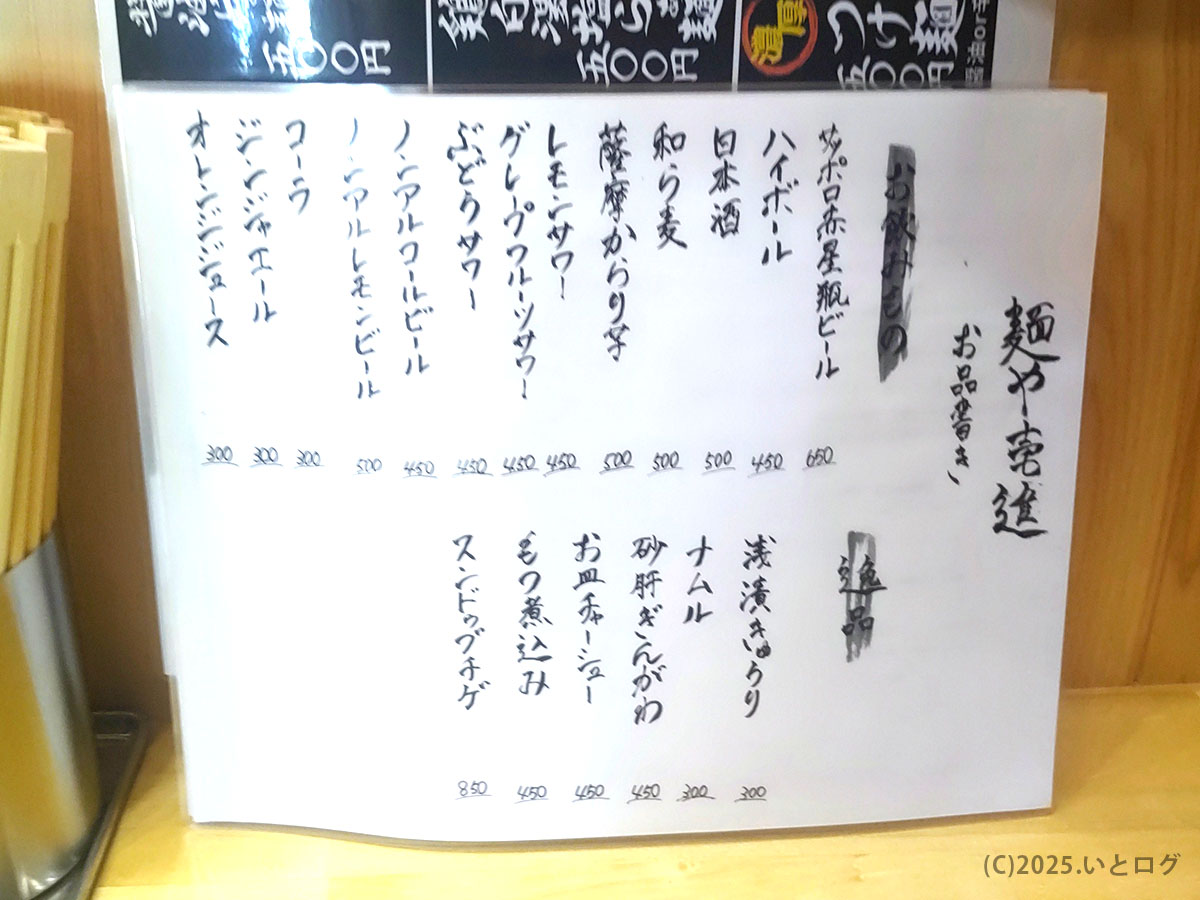 濃厚
つけ麺
五〇〇円
らぁ麺
五〇〇円
五〇〇円
麺や 進
お品書き
お飲みもの
サッポロ赤星瓶ビール 650
ハイボール 450
日本酒 500
和ら麦 500
薩摩からり芋 500
レモンサワー 450
グレープフルーツサワー 450
ぶどうサワー 450
ノンアルコールビール 450
ノンアルレモンビール 500
コーラ 300
ジンジャエール 300
オレンジジュース 300
逸品
浅漬きゅうり 300
ナムル 300
砂肝ぎんがわ 450
お皿チャーシュー 450
もつ煮込み 450
スンドゥブチゲ 850
(C)2025.いとログ